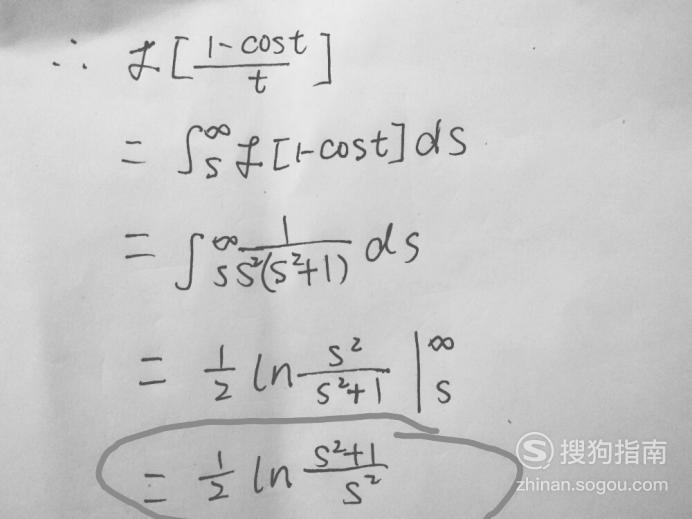 ∴ ℒ[(1-cost)/t]
= ∫_s^∞ ℒ[1-cost]ds
= ∫_s^∞ 1/(s²(s²+1)) ds
= 1/2 ln s²/(s²+1) |_s^∞
= 1/2 ln (s²+1)/s²
S 搜狗指南
zhinan.sogou.com